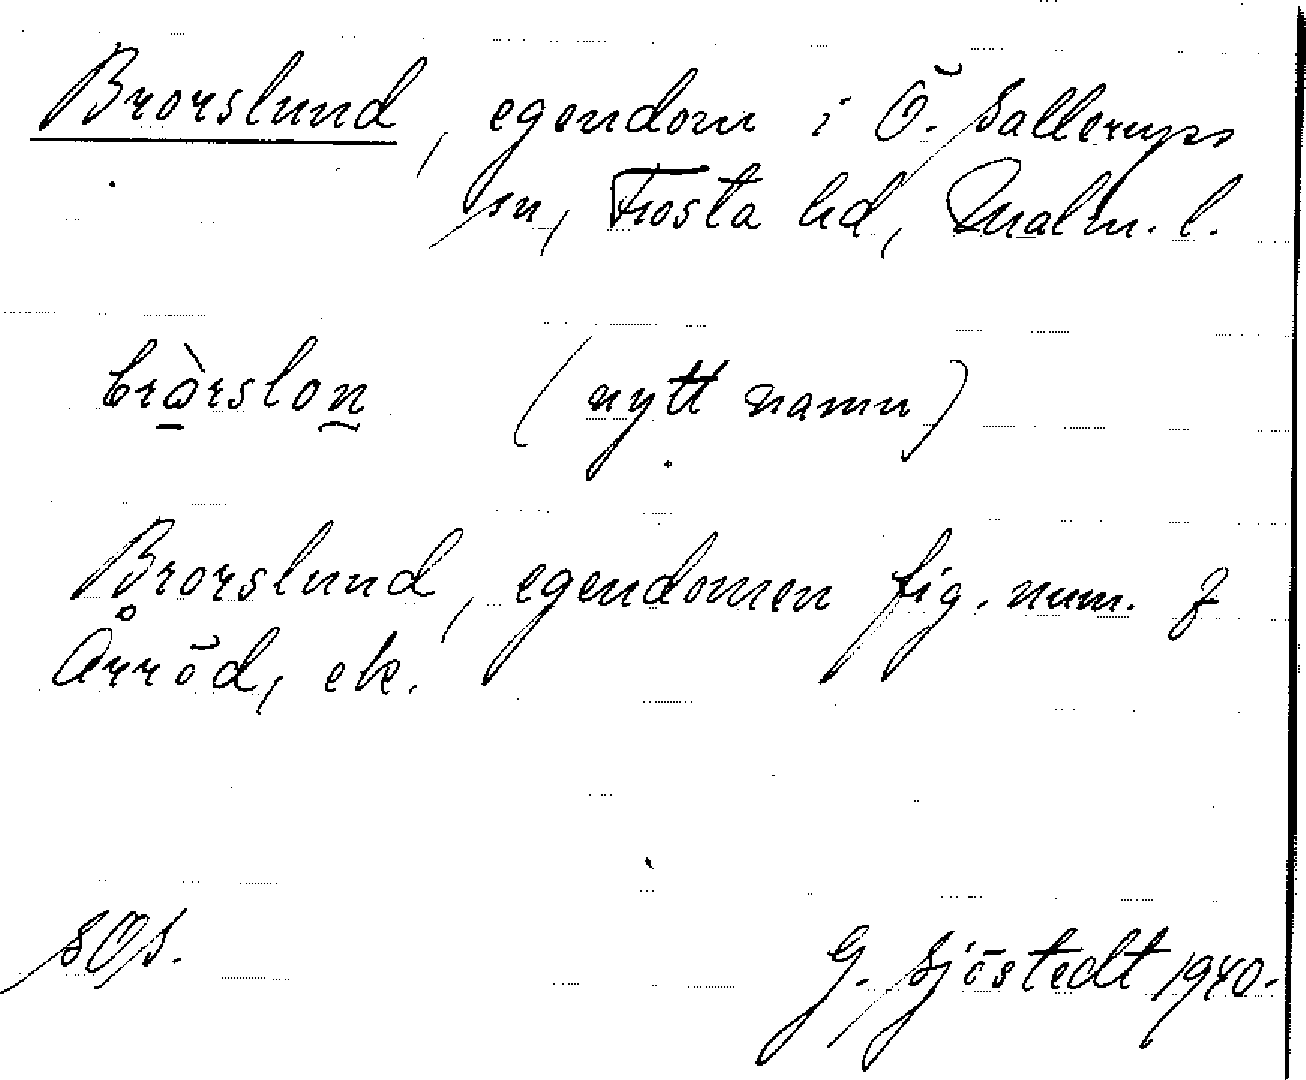 Brorslund, egendom i Ö. Sallerups
sn, Frosta hd, Malm. l.
bràrslon (nytt namn)
Brorslund, egendomen fig. num. 7
Årröd, ek.
SOS.
G. Sjöstedt 1940.